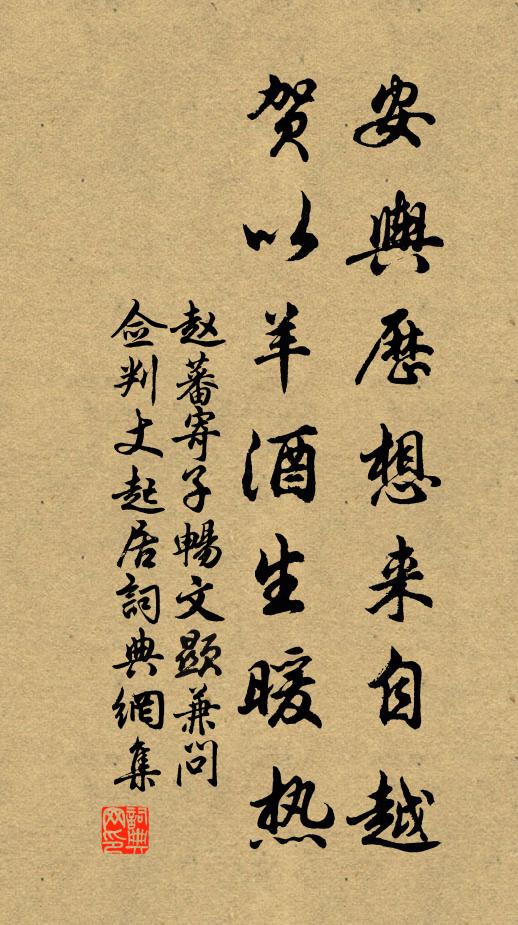 安輿歷想来自越
贺以羊酒生暖热
赵蕃寄子暢文顯兼问
佥判丈起居詞典網集
詞典网印